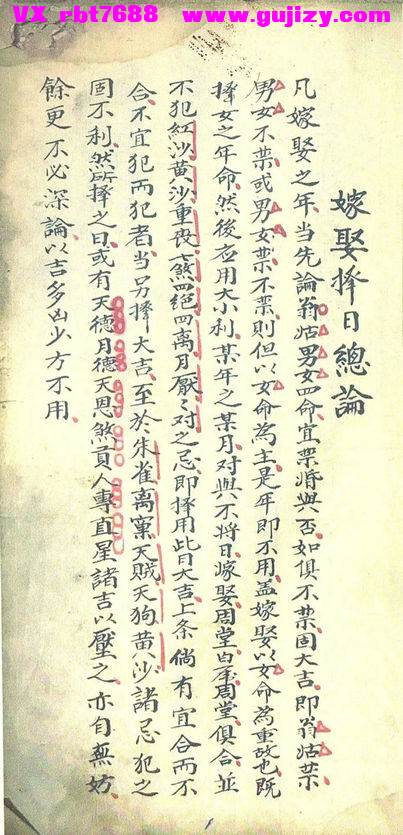 VX rbt7688 www.gujizy.com
嫁娶择日總論
凡嫁娶之年當先論翁姑男女四命宜禁婚與否如俱不禁固大吉即翁姑禁
男女不禁或男女禁不禁則但以女命為主是年即不用蓋嫁娶以女命為重故也既
择女之年命然後应用大小利某年之某月对與不将日嫁娶周堂白虎周堂俱合並
不犯紅沙黄沙重喪煞四絕四離月厭々对之忌即择用此日大吉上条倘有宜合而不
合不宜犯而犯者當另择大吉至於朱雀離窠天賊天狗黄沙諸忌犯之
固不利然所择之日或有天德月德天恩煞貢人專直星諸吉以壓之亦自無妨
餘更不必深論以吉多凶少方不用